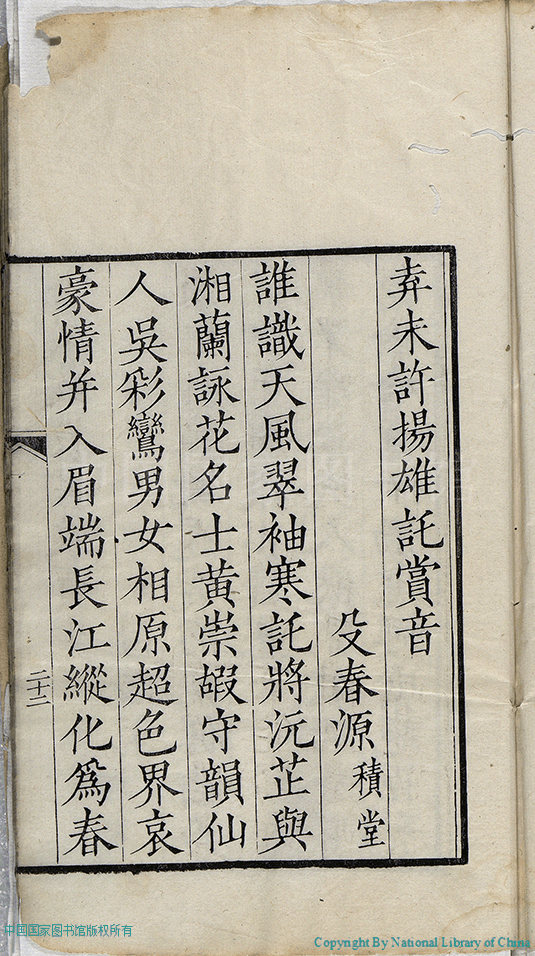 弆未許揚雄託賞音
殳春源積堂
誰識天風翠袖寒託將沅芷與
湘蘭詠花名士黄崇嘏守韻仙
人吳彩鸞男女相原超色界哀
豪情并入眉端長江縱化爲春
二十二
中国国家图书馆版权所有
Copyright By National Library of China